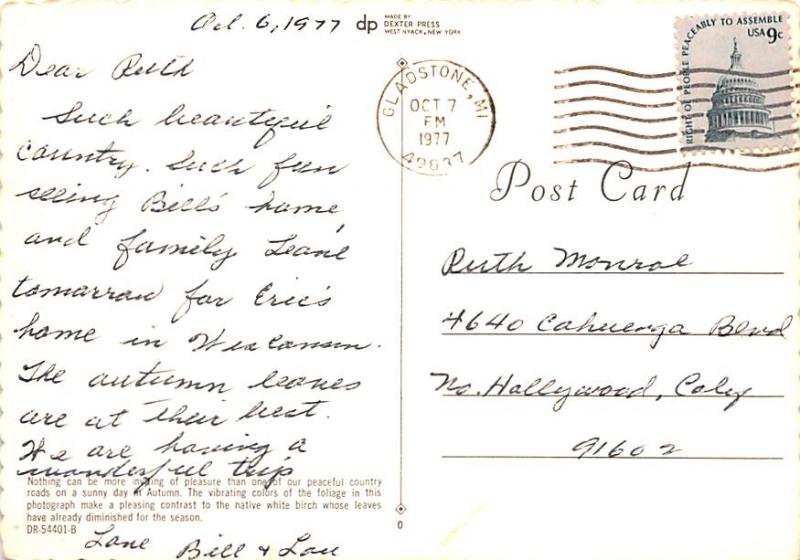 Oct. 6, 1977
dp
MADE BY
DEXTER PRESS
WEST NYACK, NEW YORK
Dear Ruth
Such beautiful
country. Such fun
seeing Bill's home
and family. Leave
tomorrow for Eric's
home in Wisconsin.
The autumn leaves
are at their best.
We are having a
wonderful trip
Nothing can be more inviting of pleasure than one of our peaceful country
roads on a sunny day in Autumn. The vibrating colors of the foliage in this
photograph make a pleasing contrast to the native white birch whose leaves
have already diminished for the season.
DR-54401-B
Love
Bill & Lou
0
GLADSTONE, MI
OCT 7
PM
1977
49837
RIGHT OF PEOPLE PEACEABLY TO ASSEMBLE
USA 9c
Post Card
Ruth Monroe
4640 Cahuenga Blvd
No. Hollywood,
91602